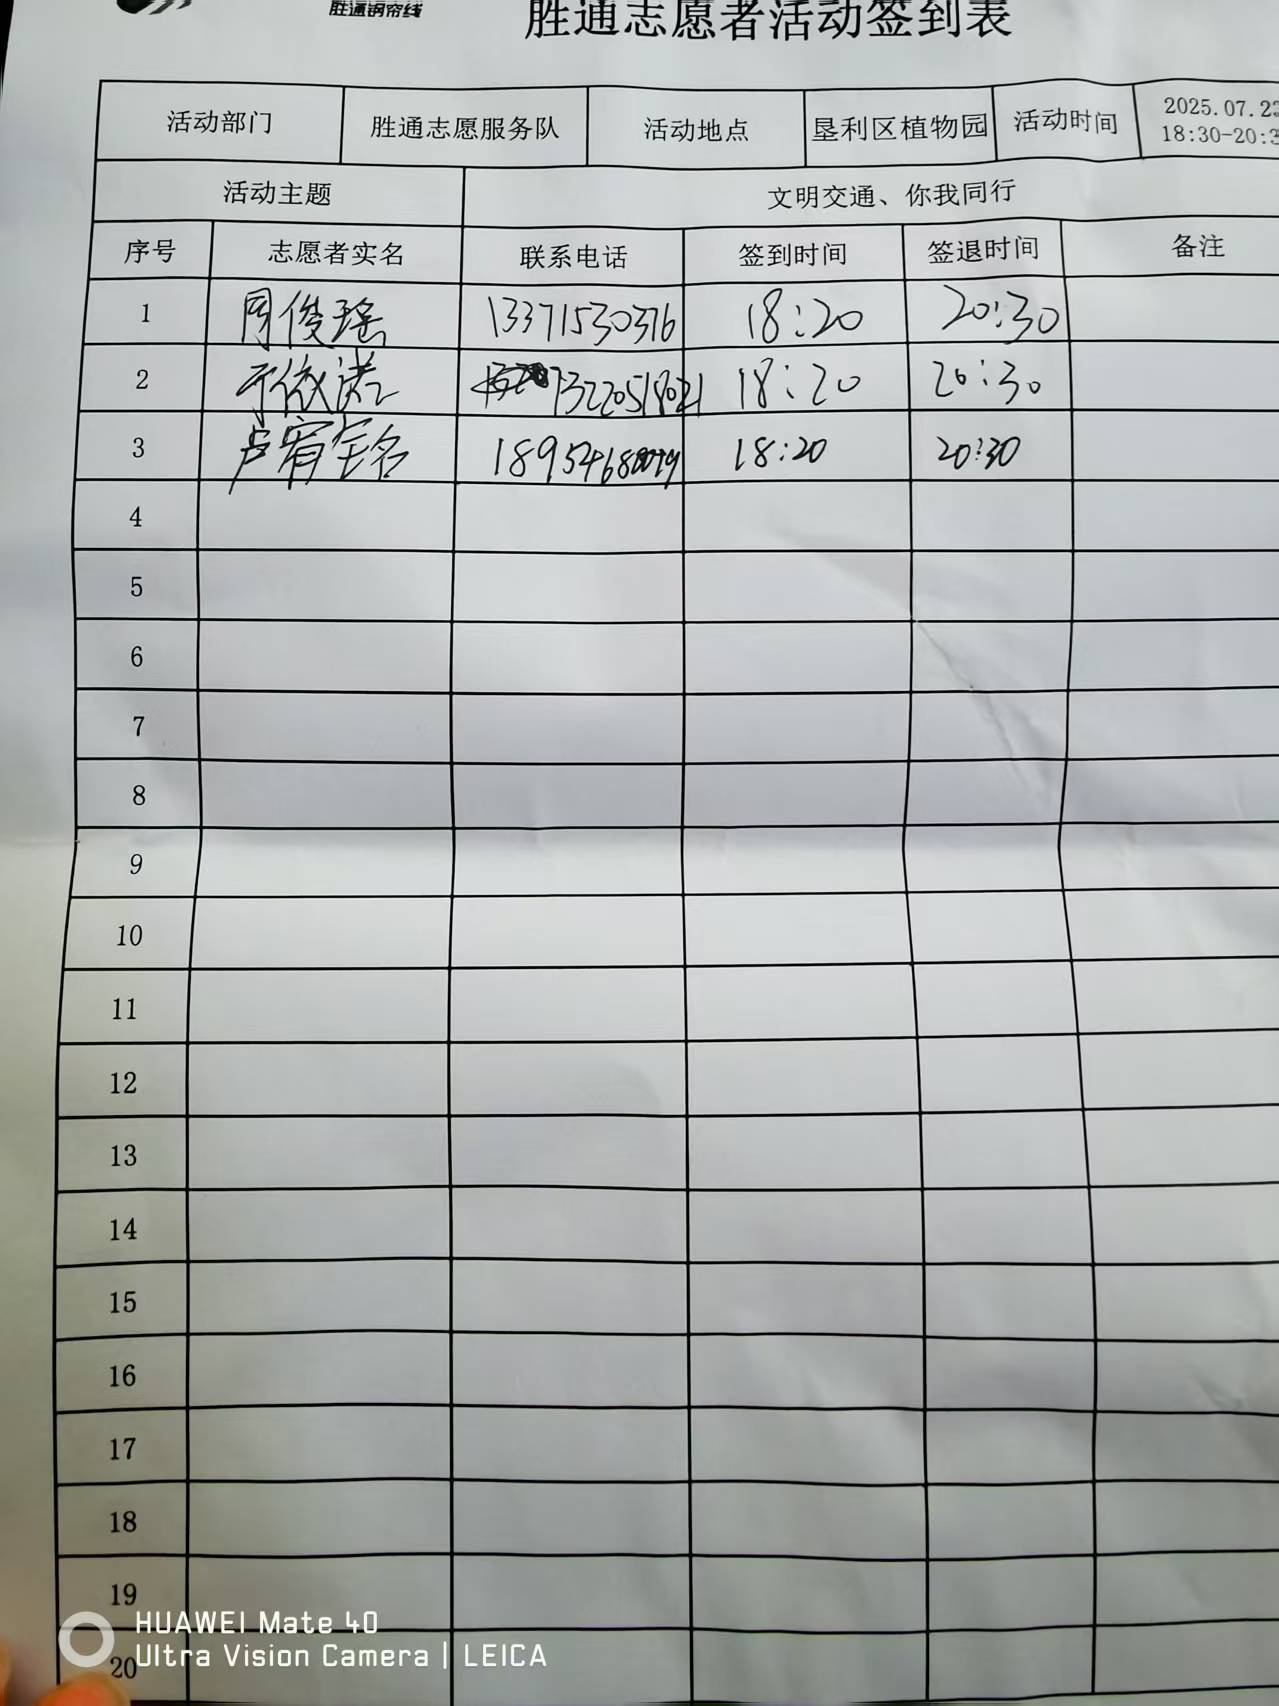 胜通钢帘线
胜通志愿者活动签到表
活动部门 胜通志愿服务队 活动地点 垦利区植物园 活动时间 2025.07.22
18:30-20:3
活动主题 文明交通、你我同行
序号 志愿者实名 联系电话 签到时间 签退时间 备注
1 周俊瑶 13371530376 18:20 20:30
2 于依诺 18:20 20:30
3 卢宥全名 18:20 20:30
4
5
6
7
8
9
10
11
12
13
14
15
16
17
18
19
20
HUAWEI Mate 40
Ultra Vision Camera | LEICA